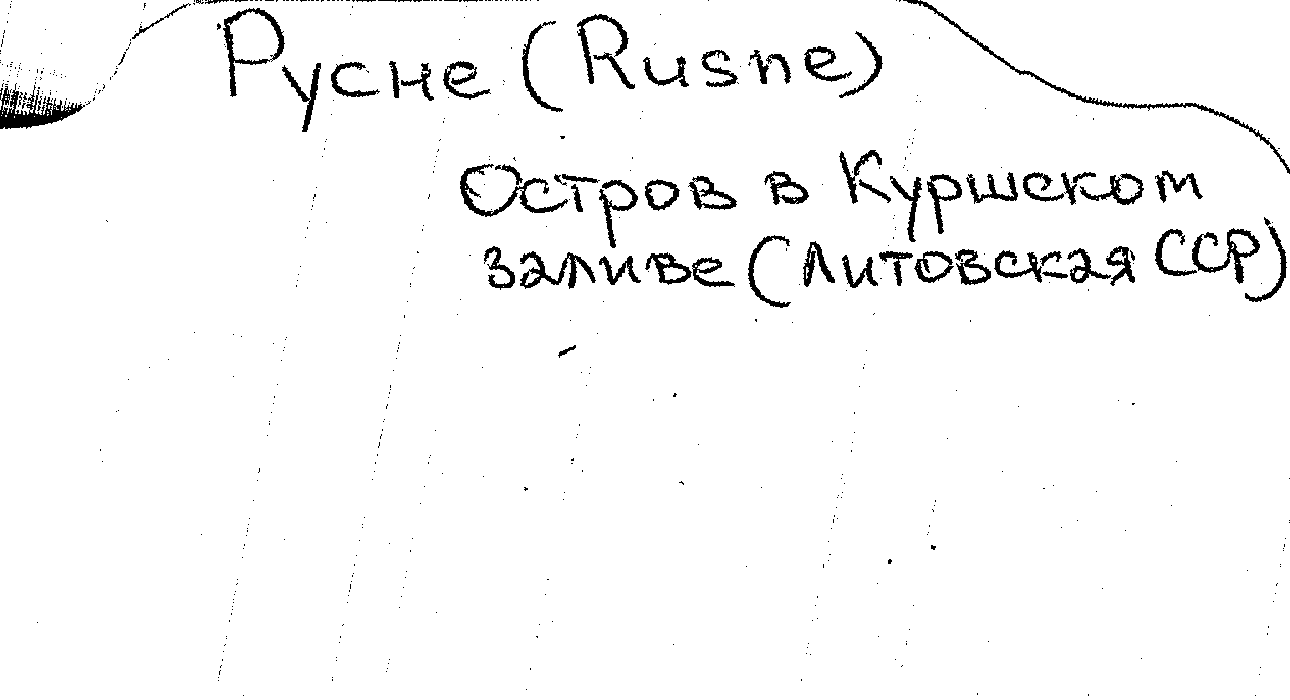 Русне (Rusne)
Остров в Куршском
заливе (Литовская ССР)